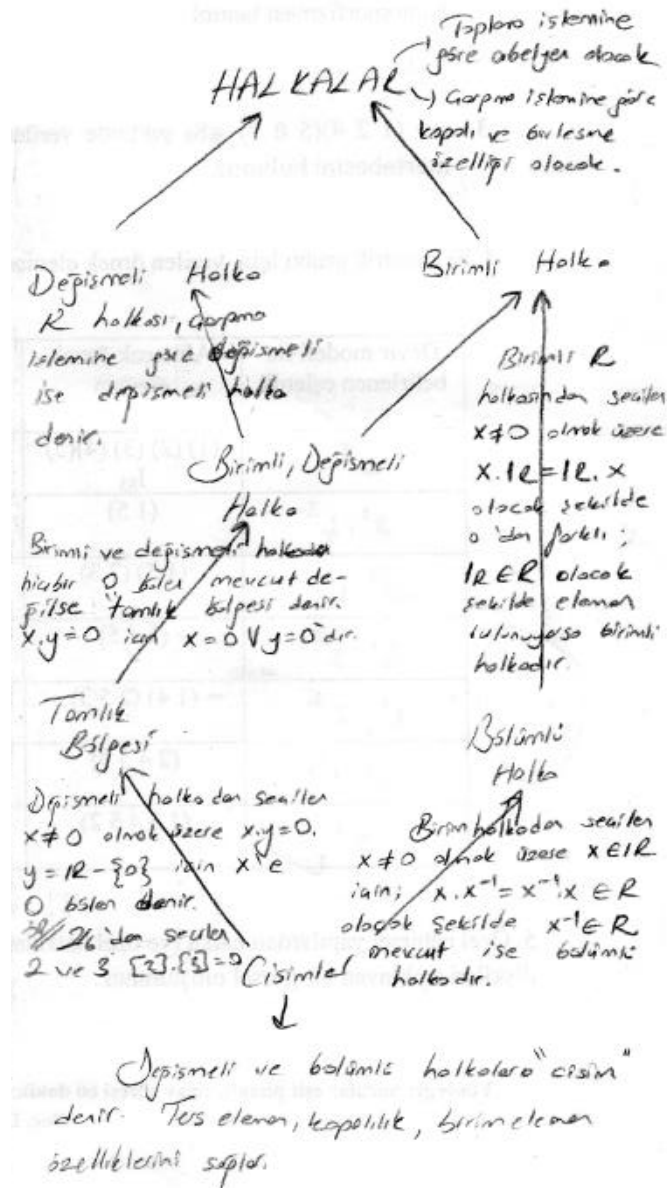 Toplama işlemine
göre abelyen olacak
HALKALAR
Çarpma işlemine göre
kapalı ve birleşme
özelliği olacak.
Değişmeli Halka
R halkası, çarpma
işlemine göre değişmeli
ise değişmeli halka
denir.
Birimli Halka
Birimli R
halkasından seçilen
x≠0 olmak üzere
x.1R=1R.x
olacak şekilde
0'dan farklı
1R∈R olacak
şekilde eleman
bulunuyorsa birimli
halkadır.
Birimli, Değişmeli
Halka
Birimli ve değişmeli halkada
hiçbir 0 bölen mevcut de-
ğilse tamlık bölgesi denir.
x.y=0 için x=0 V y=0 dır.
Tamlık
Bölgesi
Değişmeli halkadan seçilen
x≠0 olmak üzere x.y=0.
y=R-{0} için x'e
0 bölen denir.
den seçilen
2 ve 3
Bölümlü
Halka
Birim halkadan seçilen
x≠0 olmak üzere x∈R
için; x.x⁻¹=x⁻¹.x ∈R
olacak şekilde x⁻¹∈R
mevcut ise bölümlü
halkadır.
Cisimler
Değişmeli ve bölümlü halkalara "cisim"
denir. Ters eleman, kapalılık, birim eleman
özelliklerini sağlar.